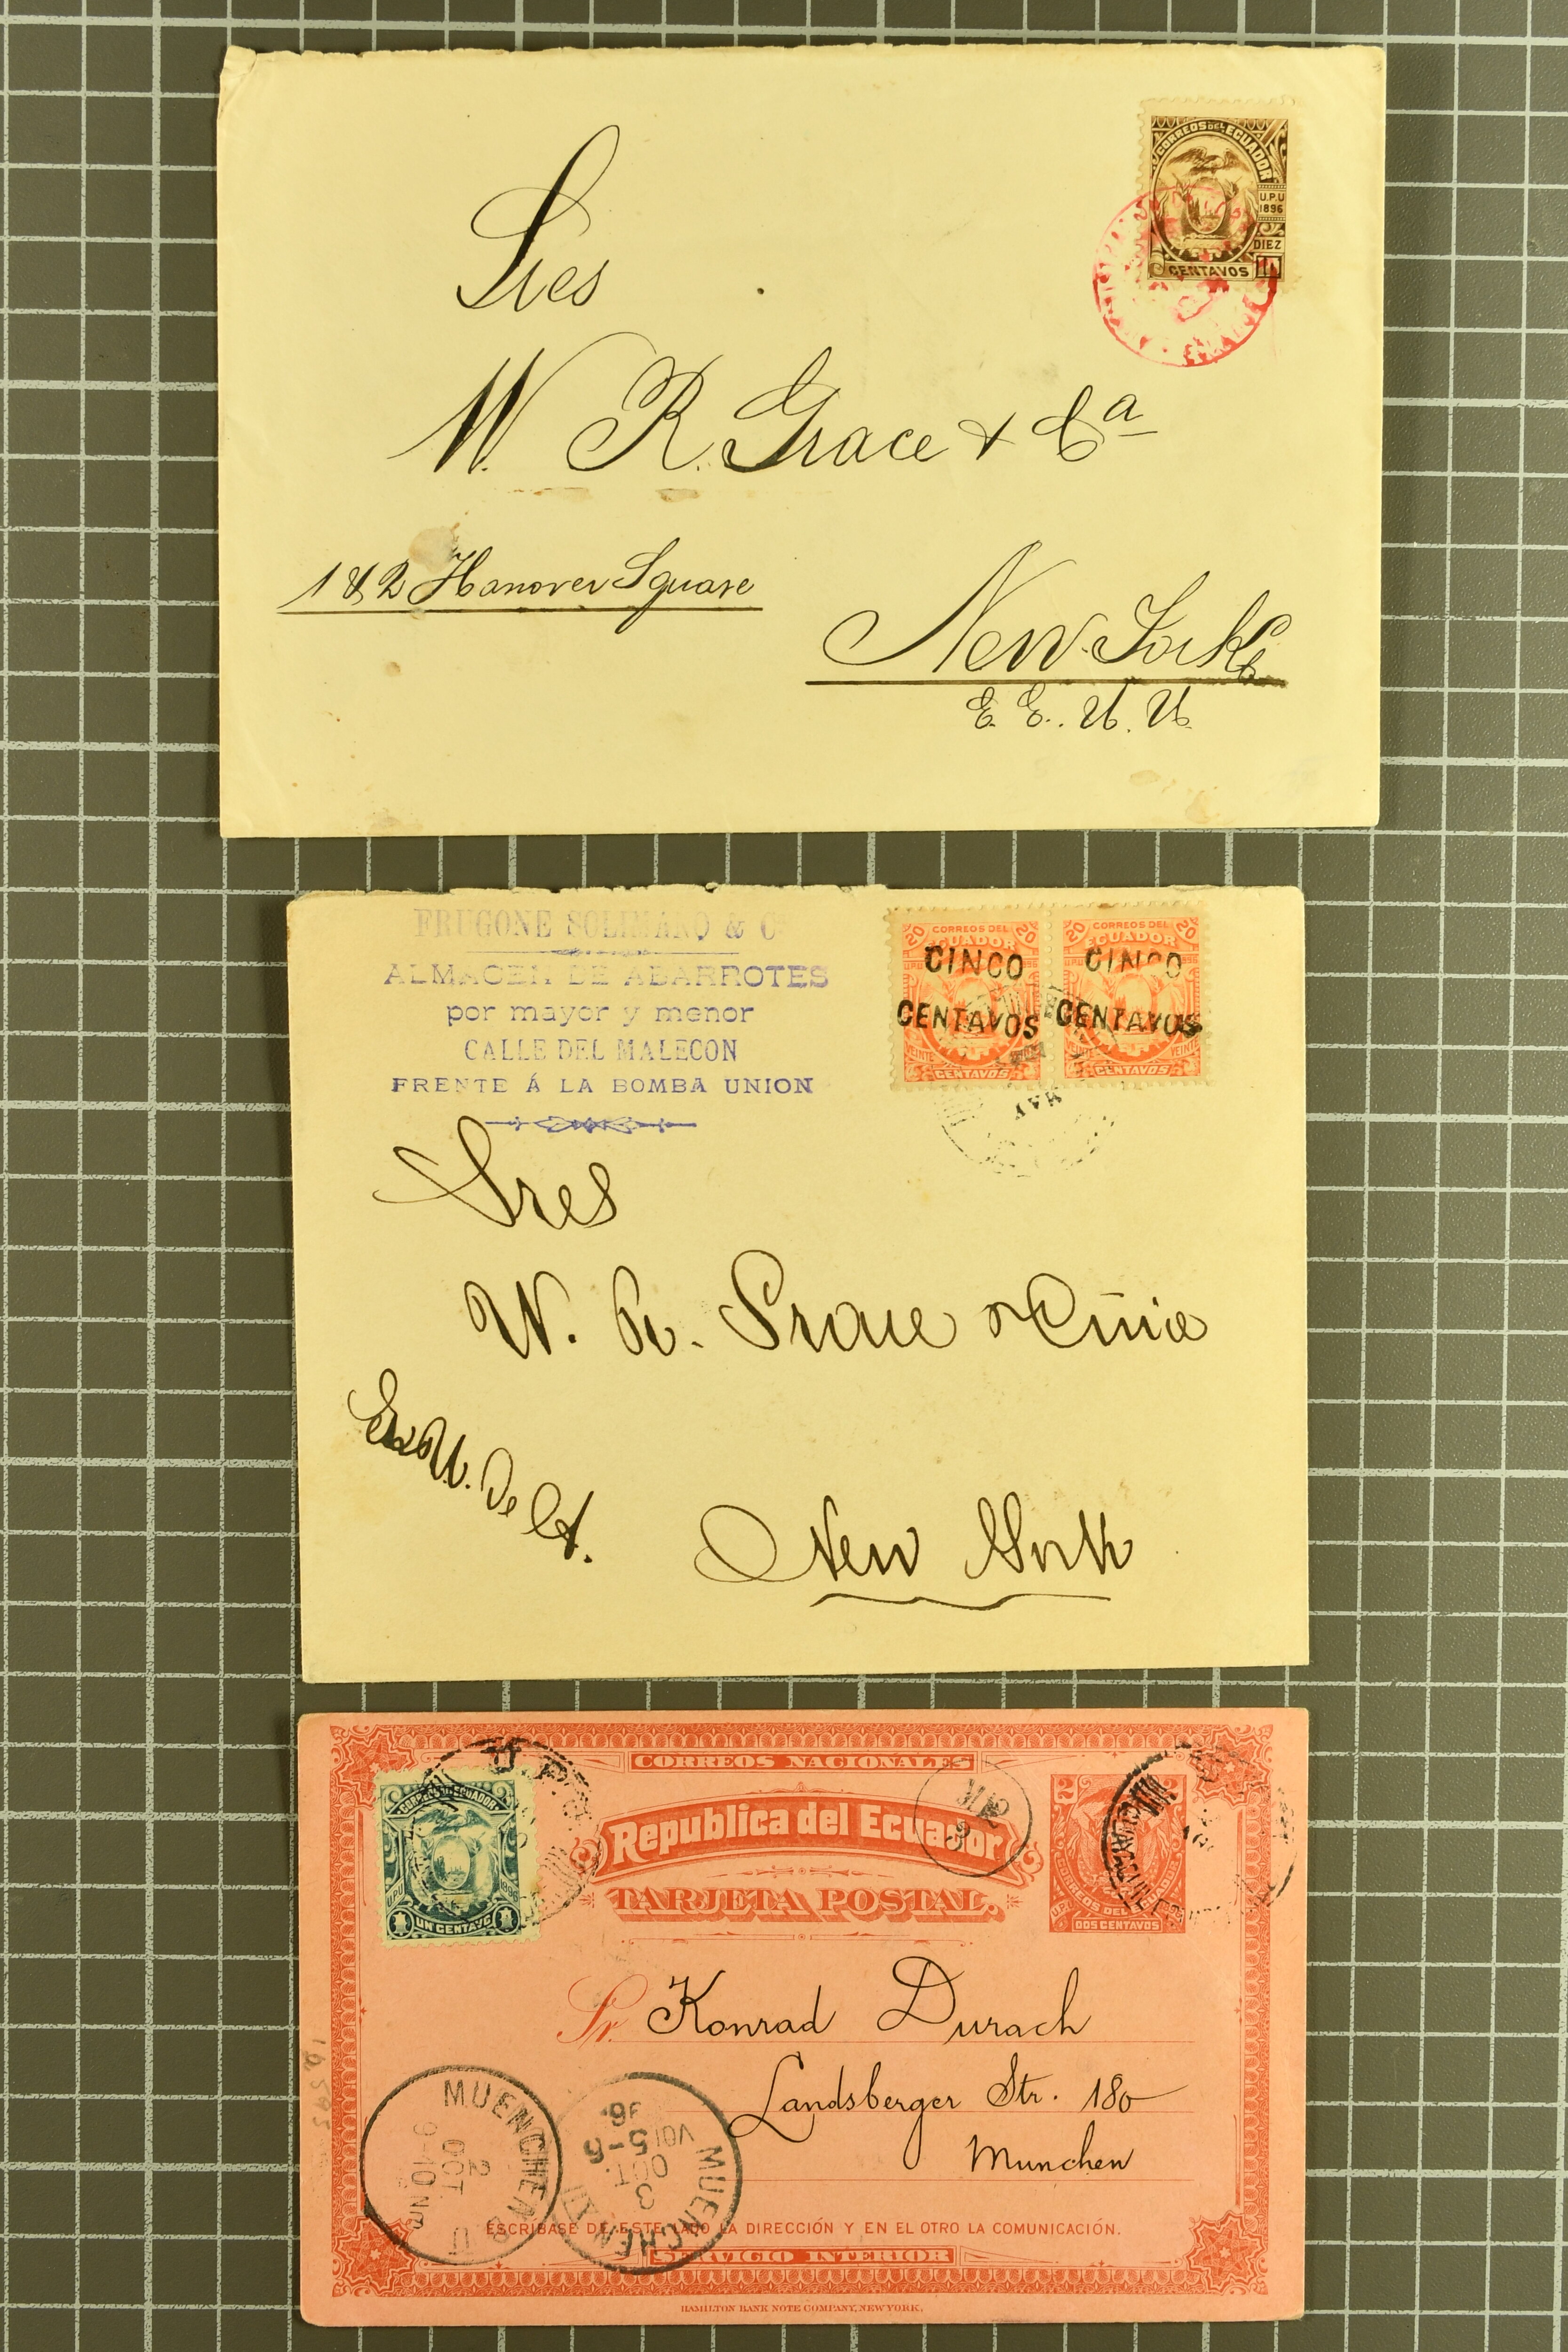 CORREOS DEL ECUADOR
U.P.U
1896
DIEZ
CENTAVOS
Sres
W. R. Grace & Ca
1 & 2 Hanover Square
New York
E. E. U. U.
FRUGONE SOLIMANO & Ca
ALMACEN DE ABARROTES
por mayor y menor
CALLE DEL MALECON
FRENTE Á LA BOMBA UNION
20 CORREOS DEL 20
ECUADOR
CINCO
CENTAVOS
VEINTE
CENTAVOS
20 CORREOS DEL 20
ECUADOR
CINCO
CENTAVOS
VEINTE VEINTE
CENTAVOS
MAY
Sres
W. R. Grace & Cñia
New York
CORREOS NACIONALES
Republica del Ecuador
TARJETA POSTAL.
CORREOS DEL ECUADOR
UPU 1896
1 UN CENTAVO 1
U.P.U
2
CORREOS DEL ECUADOR
U.P.U.
DOS CENTAVOS
Sr. Konrad Durach
Landsberger Str. 180
Munchen
MUENCHEN B
2
OCT
9-10 NM
II
MUENCHEN IV
3
OCT.
5-6
VOR
96.
ESCRIBASE DE ESTE LADO LA DIRECCIÓN Y EN EL OTRO LA COMUNICACIÓN.
SERVICIO INTERIOR
HAMILTON BANK NOTE COMPANY, NEW YORK.